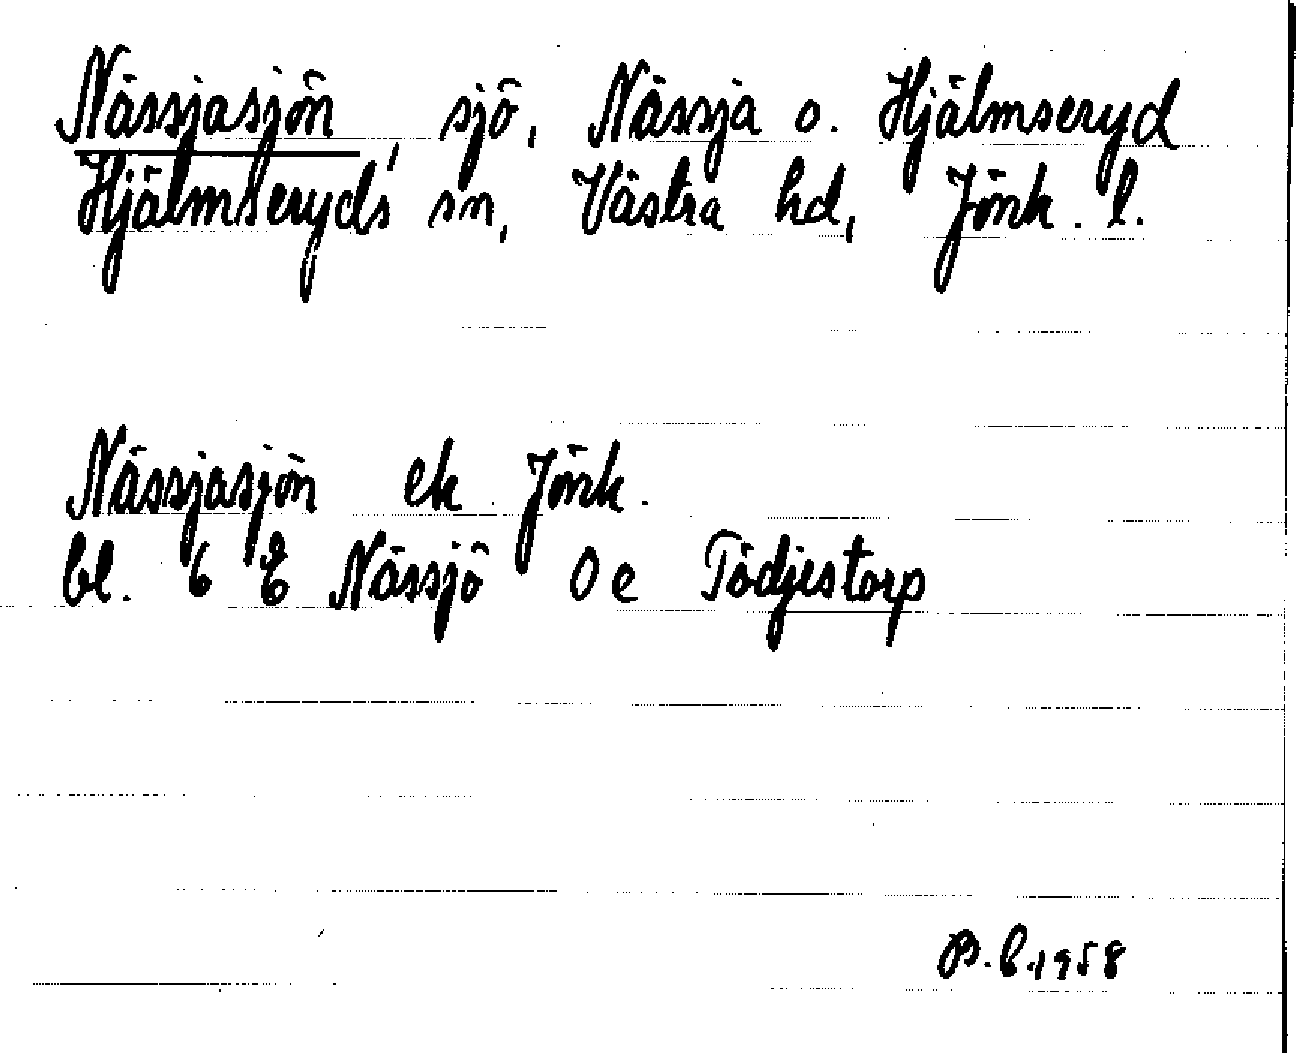 Nässjasjön, sjö, Nässja o. Hjälmseryd
Hjälmseryds sn, Västra hd, Jönk. l.
Nässjasjön ek Jönk.
bl. 6 E Nässjö 0 e Tödjestorp
B. E. 1958